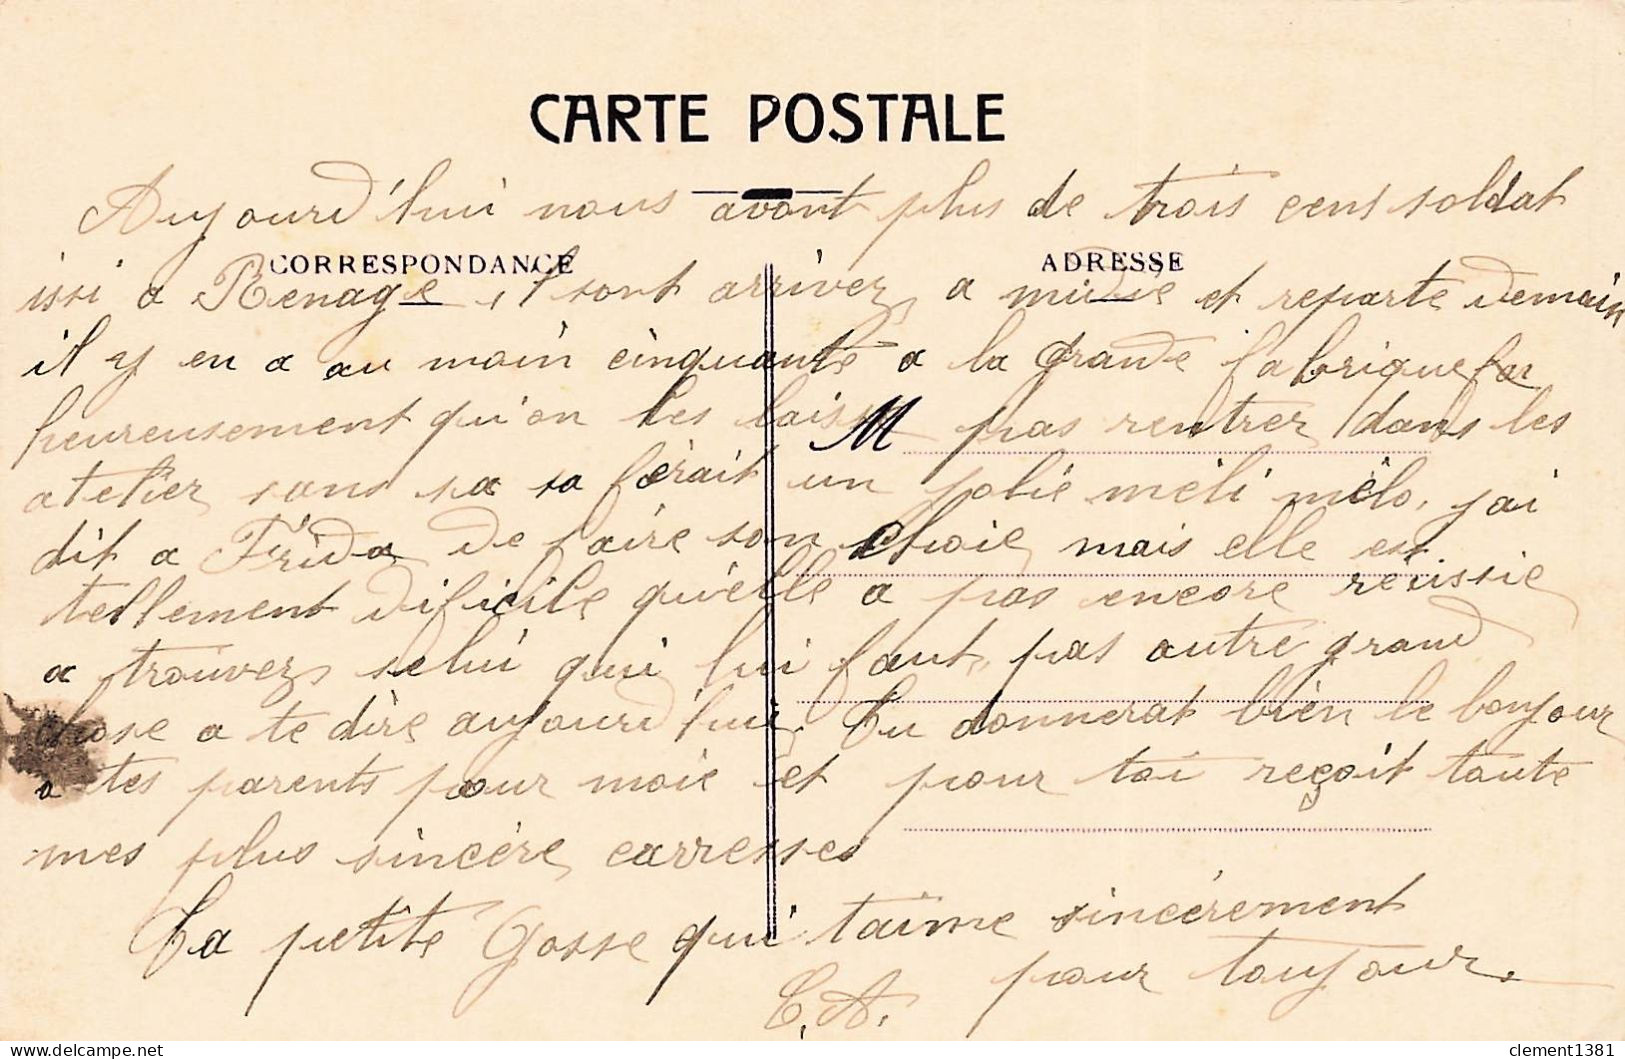 CARTE POSTALE
Aujourd'hui nous avont plus de trois cent soldat
CORRESPONDANCE
ADRESSE
issi a Renage, il sont arrivez a midie et reparte demain
il y en a au moin cinquante a la grande fabrique far
heureusement qu'on les laisse M pas rentrer dans les
atelier sans sa sa ferait un jolie mèli mèlo, j'ai
dit a Frida de faire son choie mais elle est
tellement dificile qu'elle a pas encore réussie
a trouvez selui qui lui faut, pas autre grand
chose a te dire aujourd'hui. Tu donnerat bien le bonjour
a tes parents pour moie et pour toi reçoit toute
mes plus sincère carresses
Ta petite Gosse qui t'aime sincérement
pour toujour.
C. A.
clement1381